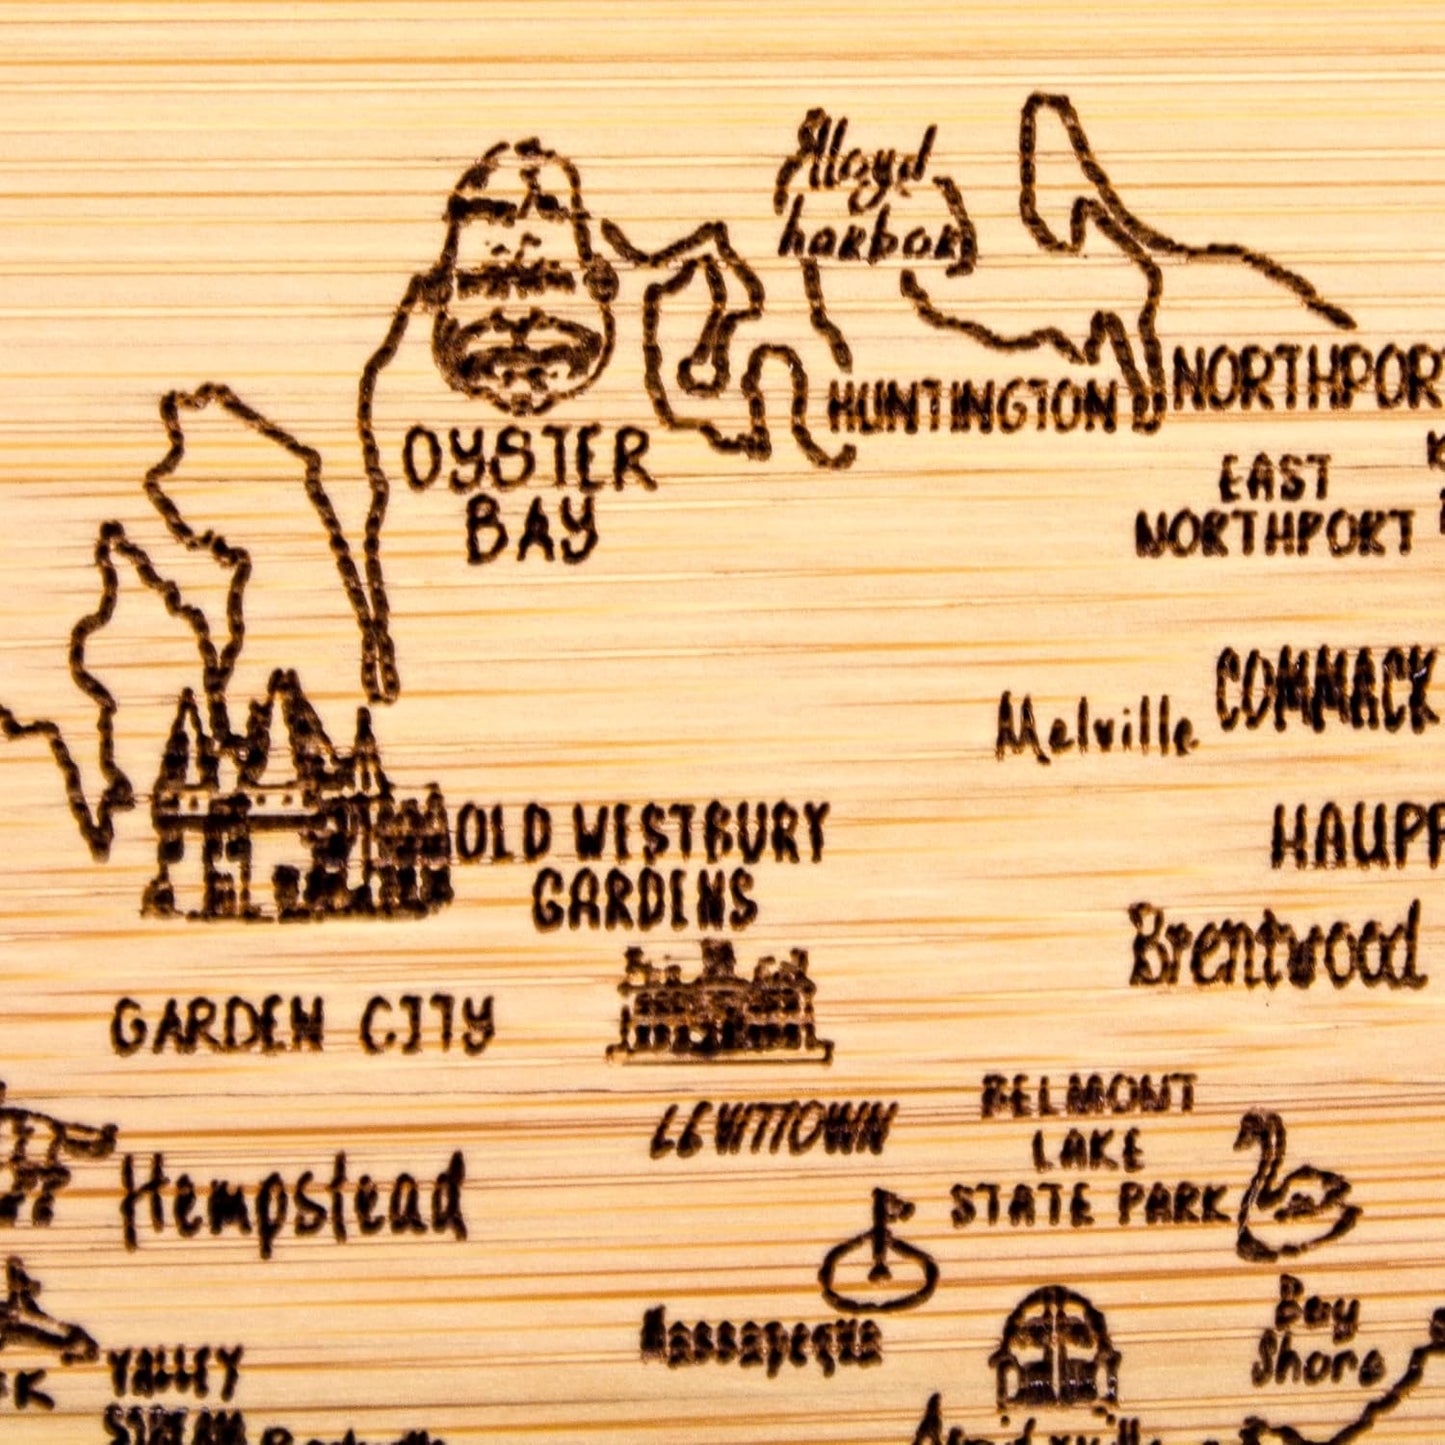 Lloyd
harbor
HUNTINGTON
NORTHPOR
OYSTER
BAY
EAST
NORTHPORT
Melville
COMMACK
OLD WESTBURY
GARDENS
HAUPP
Brentwood
GARDEN CITY
LEVITTOWN
BELMONT
LAKE
STATE PARK
Hempstead
Massapequa
Bay
Shore
VALLEY
STREAM